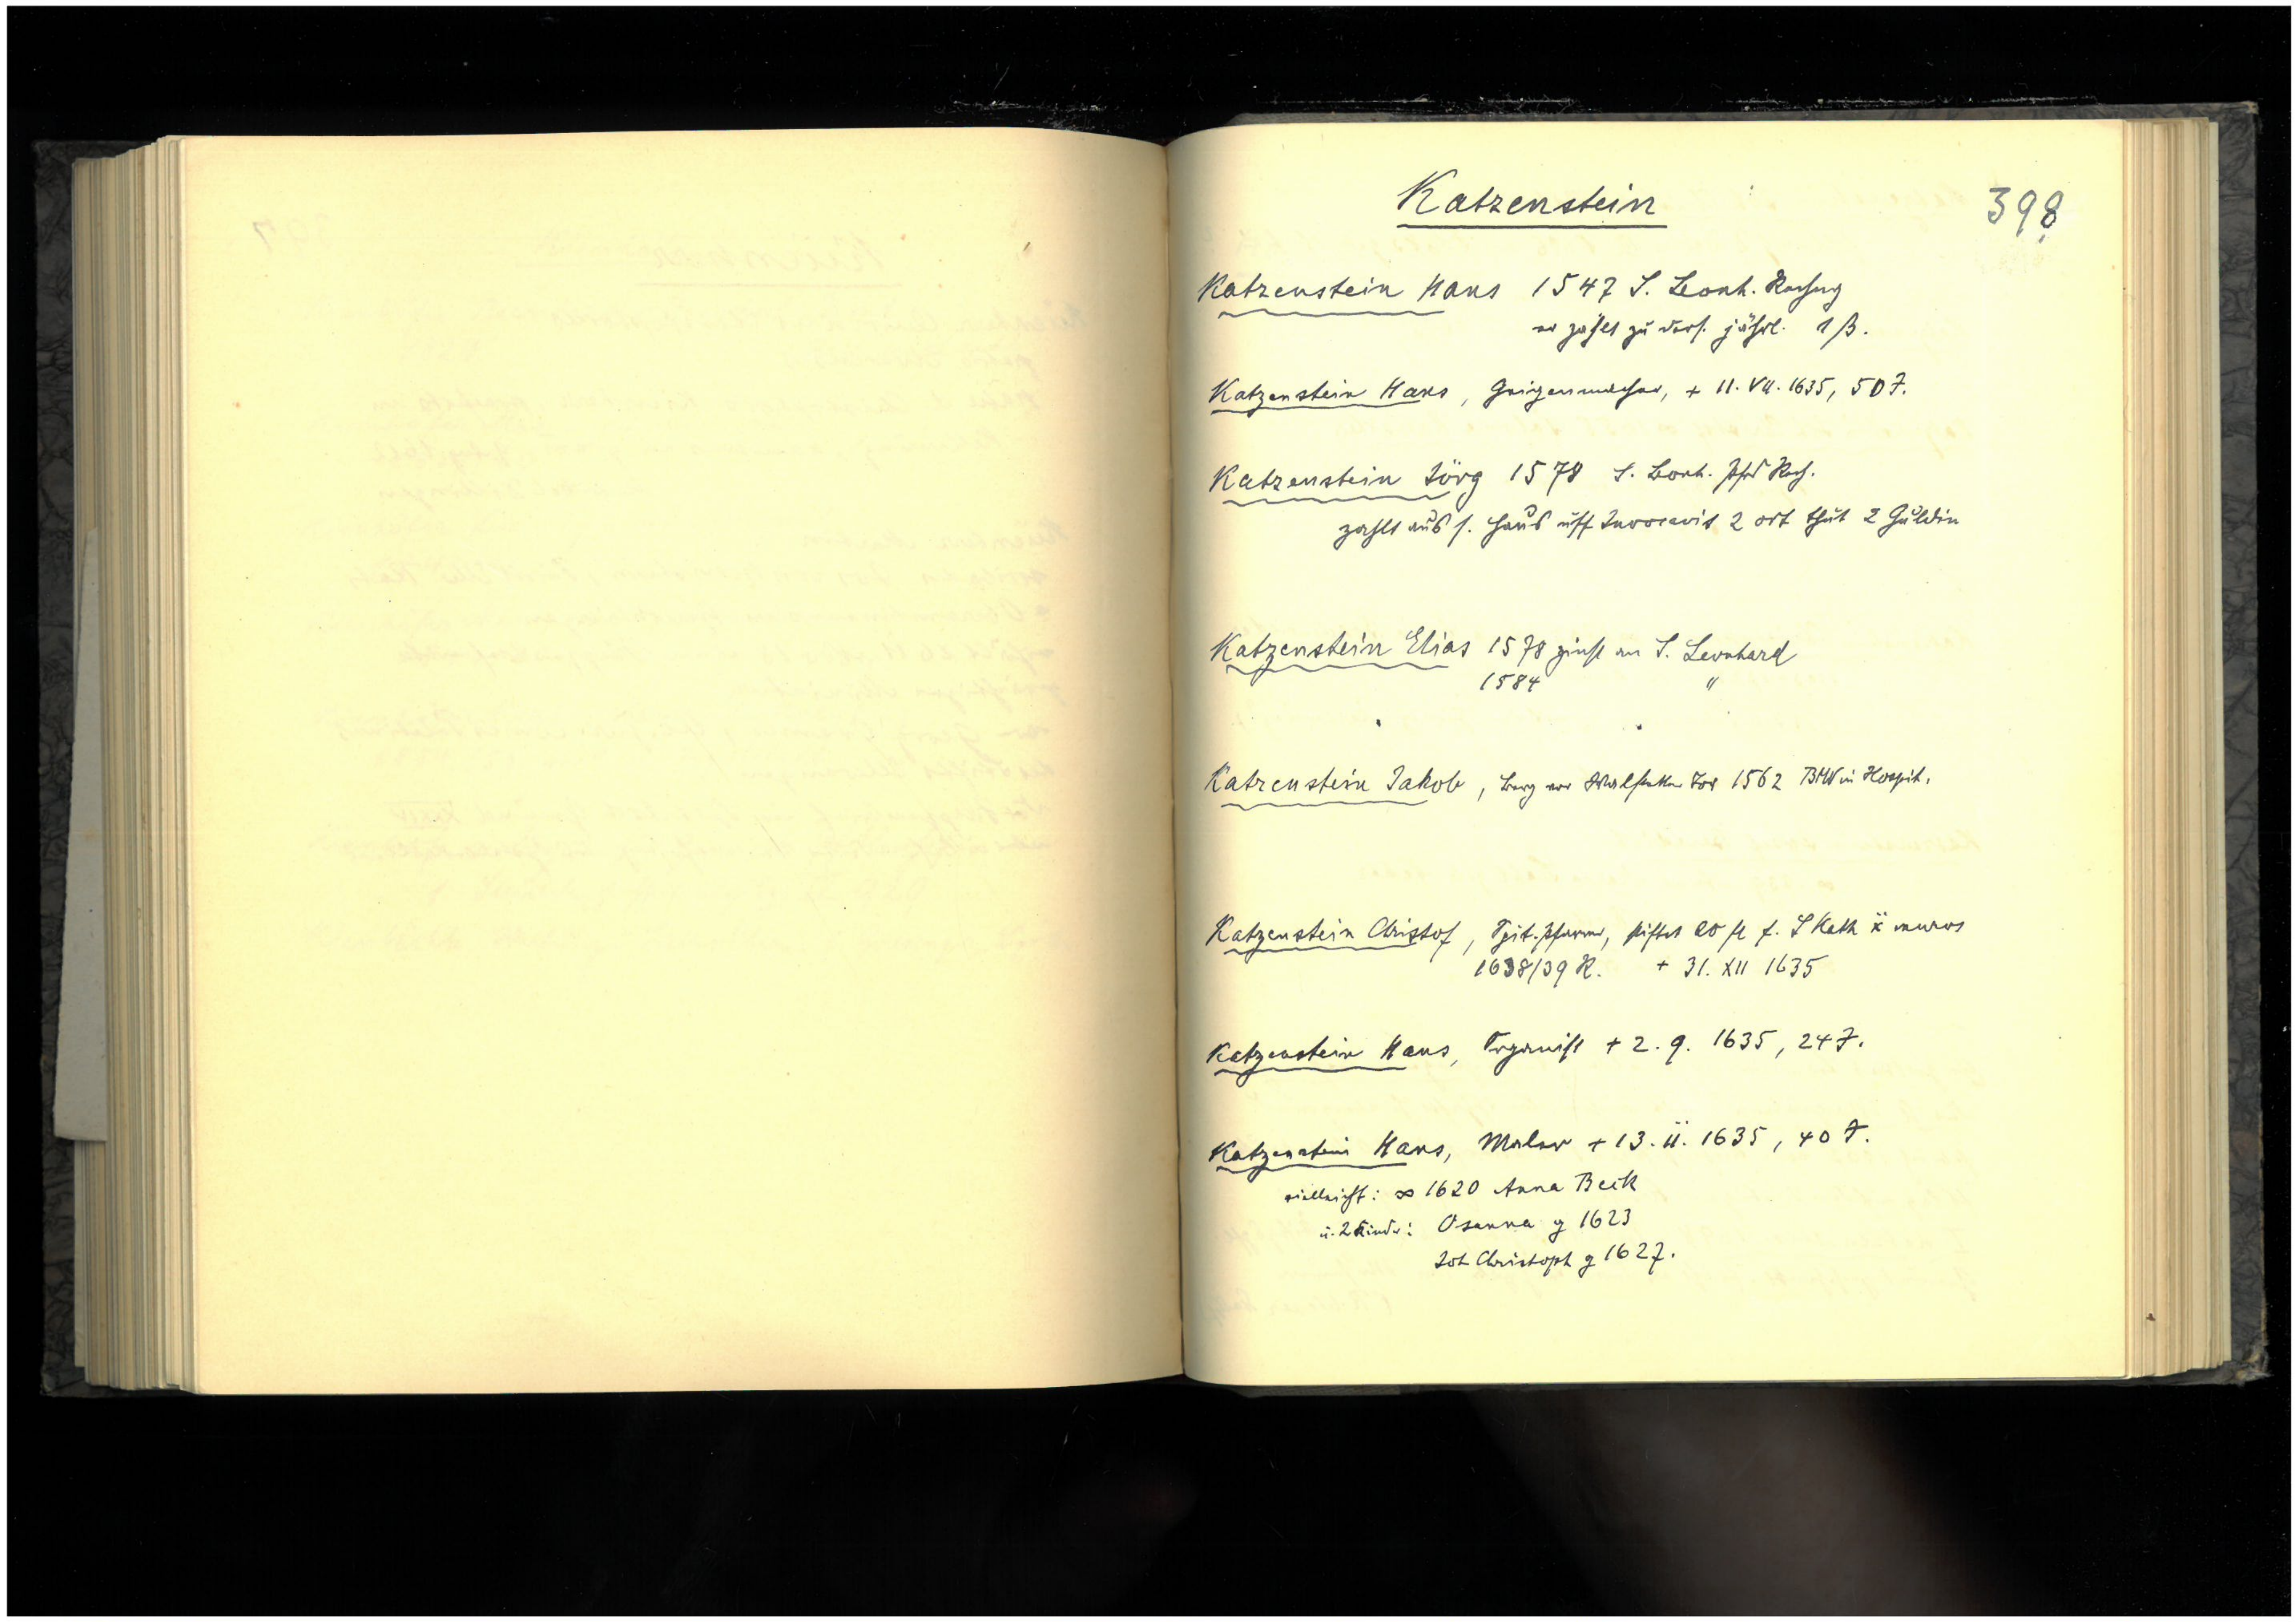 Katzenstein
398
Katzenstein Hans 1547 S. Leonh. Rechng
er zahlt zu ders. jährl. 1 ß.
Katzenstein Hans, Geigenmacher, + 11. VII. 1635, 50 J.
Katzenstein Jörg 1578 S. Leonh. Pfd Rech.
zahlt aus s. Haus uff Invocavit 2 ort thut 2 Guldin
Katzenstein Elias 1578 zinst an S. Leonhard
1584 "
Katzenstein Jakob, vor Tor 1562 in Hospit.
Katzenstein Christof, Spit. Pfarrer, stiftet 20 fl f. S Kath muros
1638/39 R. + 31. XII 1635
Katzenstein Hans, Organist + 2. 9. 1635, 24 J.
Katzenstein Hans, Maler + 13. ii. 1635, 40 J.
vielleicht: ∞ 1620 Anna Beck
u. 2 Kinder: Osanna g 1623
Joh Christoph g 1627.